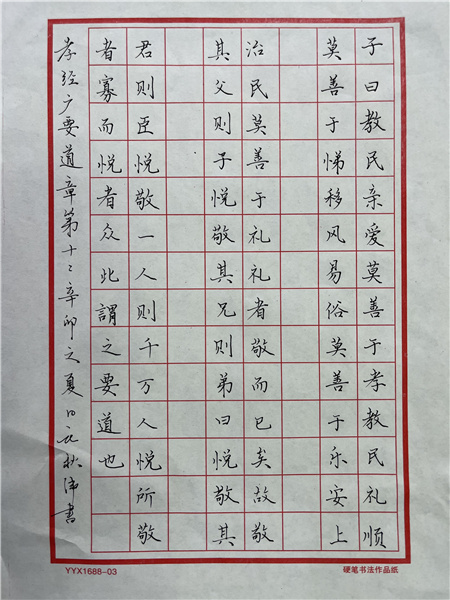 子曰教民亲爱莫善于孝教民礼顺
莫善于悌移风易俗莫善于乐安上
治民莫善于礼礼者敬而已矣故敬
其父则子悦敬其兄则弟曰悦敬其
君则臣悦敬一人则千万人悦所敬
者寡而悦者众此謂之要道也
孝经广要道章第十二辛卯之夏日秋书
YYX1688-03
硬笔书法作品纸